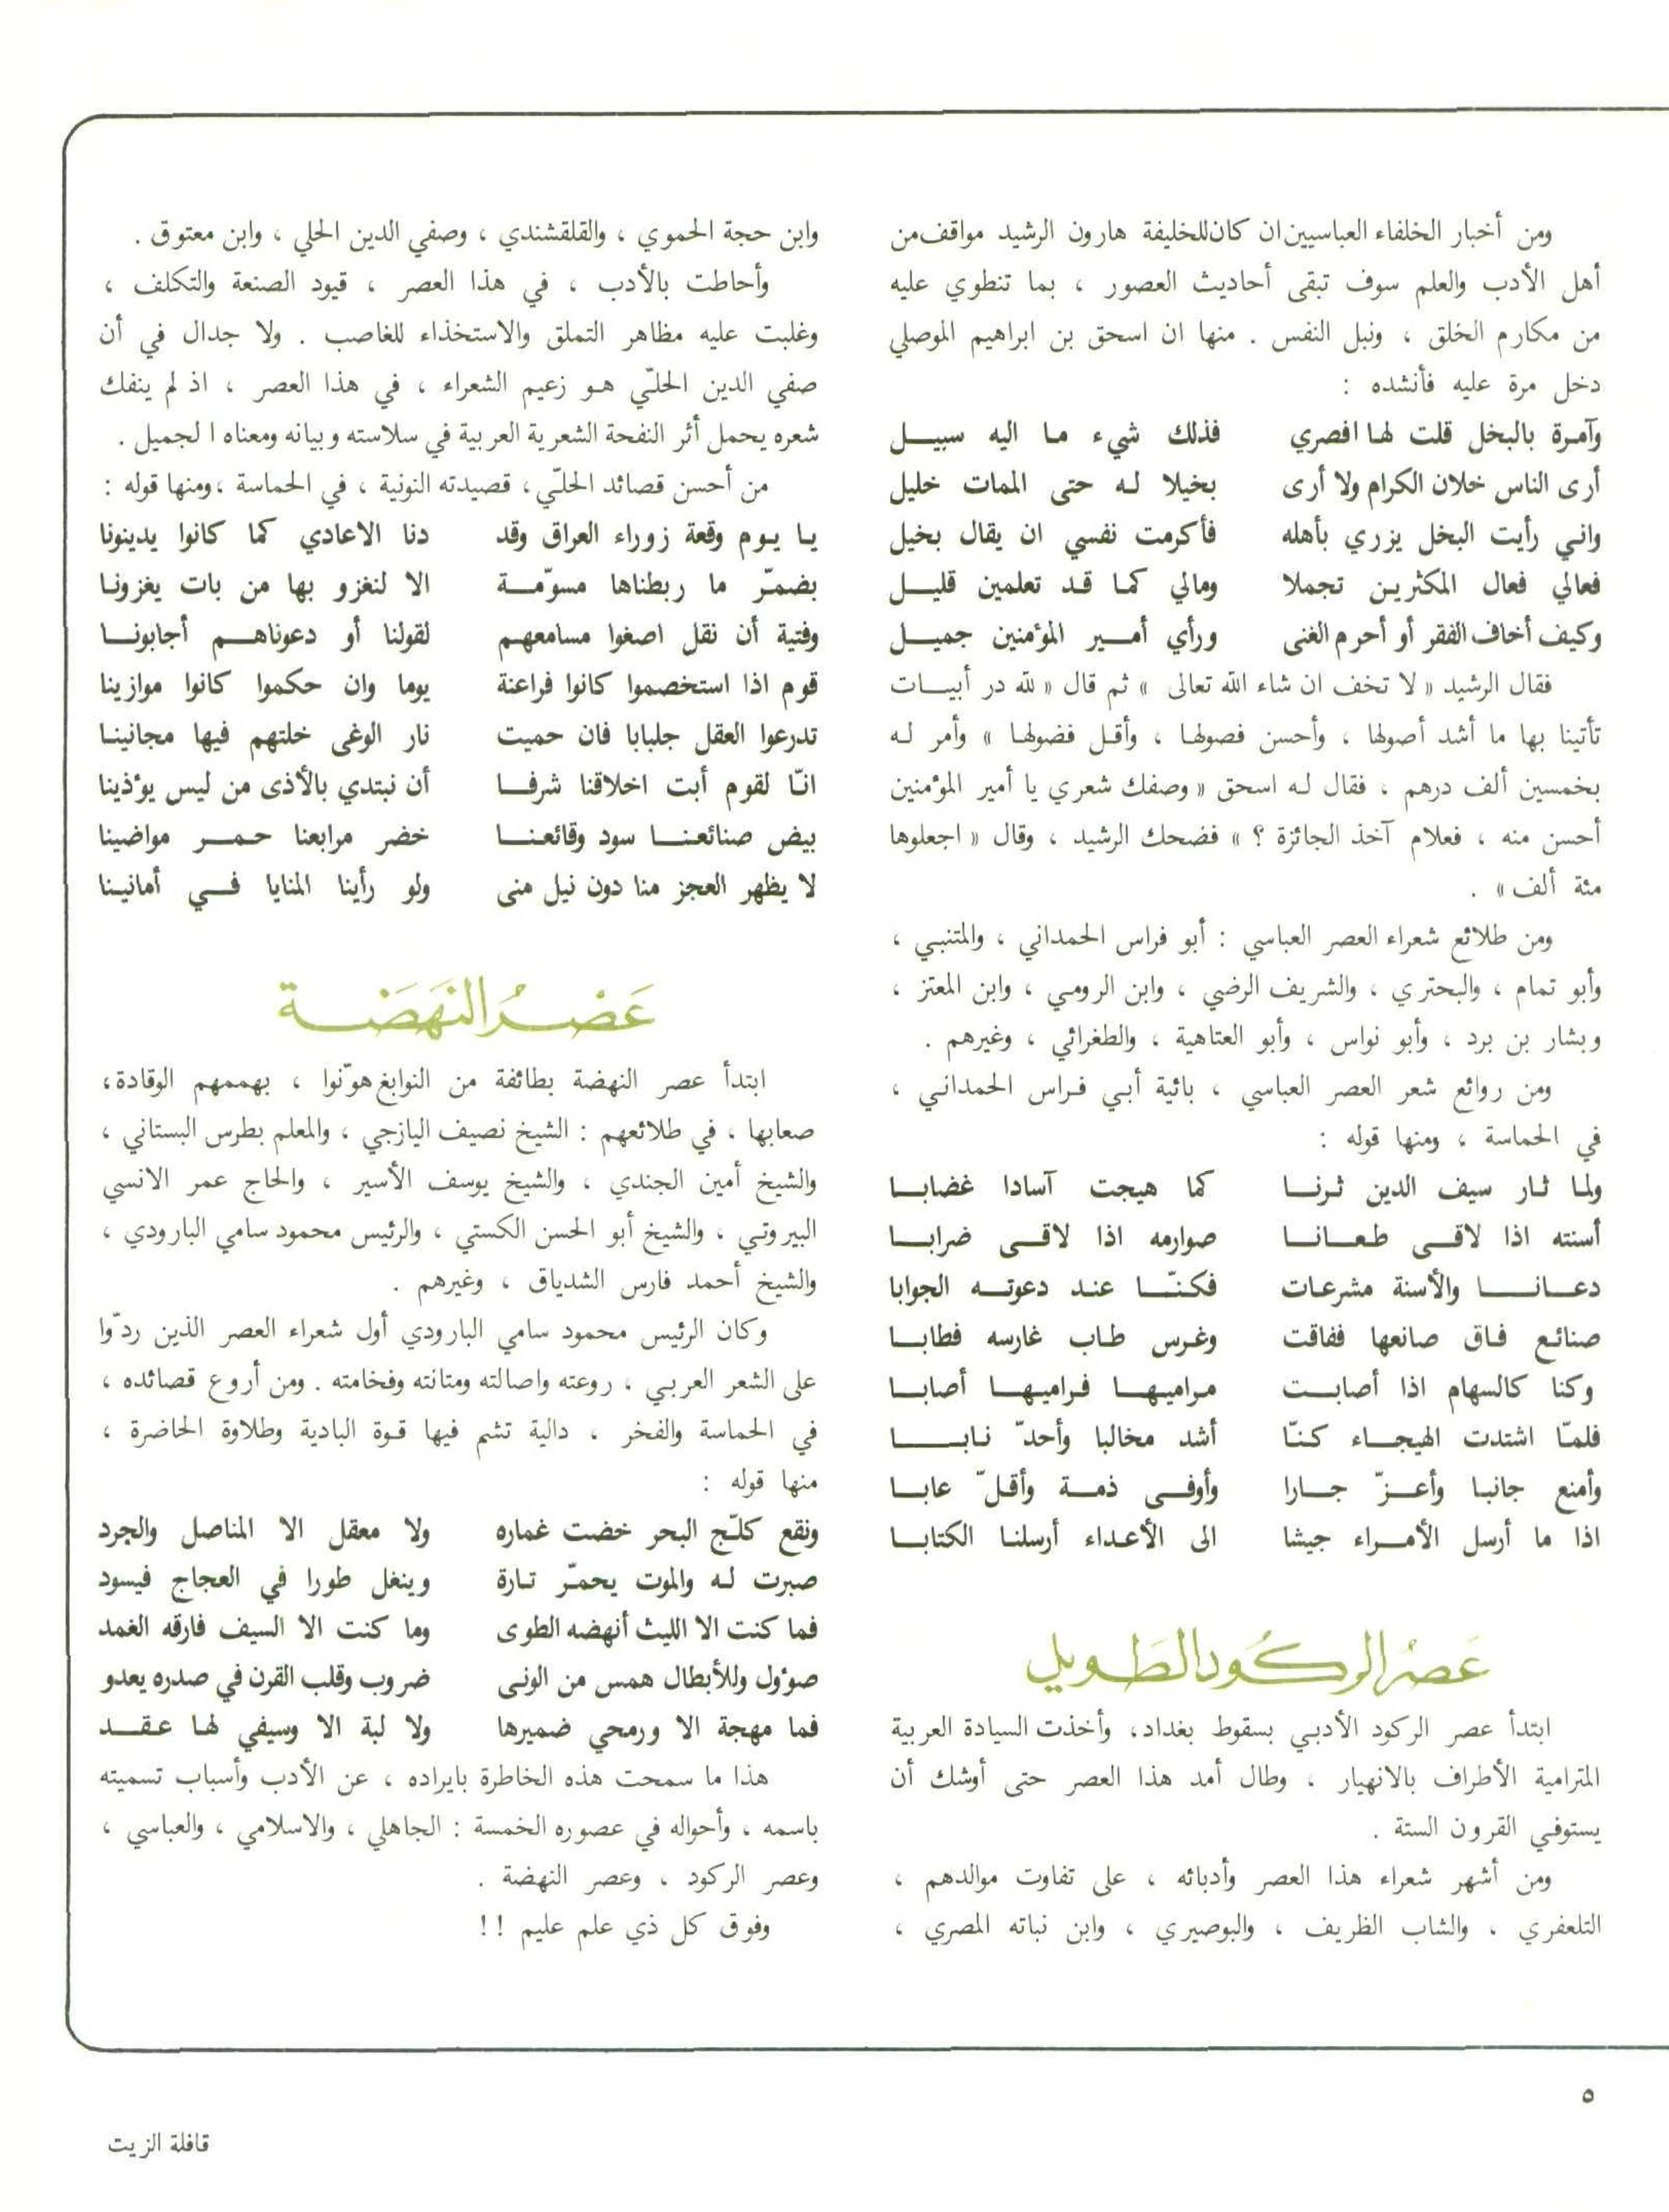 ومن أخبار الخلفاء العباسيين ان كان للخليفة هارون الرشيد مواقف من
أهل الأدب والعلم سوف تبقى أحاديث العصور ، بما تنطوي عليه
من مكارم الخلق ، ونبل النفس . منها ان اسحق بن ابراهيم الموصلي
دخل مرة عليه فأنشده :
وآمرة بالبخل قلت لها افصري فذلك شيء ما اليه سبيل
أرى الناس خلان الكرام ولا أرى بخيلا له حتى الممات خليل
واني رأيت البخل يزري بأهله فأكرمت نفسي ان يقال بخيل
فعالي فعال المكثرين تجملا ومالي كما قد تعلمين قليل
وكيف أخاف الفقر أو أحرم الغنى ورأي أمير المؤمنين جميل
فقال الرشيد « لا تخف ان شاء الله تعالى » ثم قال « لله در أبيات
تأتينا بها ما أشد أصولها ، وأحسن فصولها ، وأقل فضولها » وأمر له
بخمسين ألف درهم ، فقال له اسحق « وصفك شعري يا أمير المؤمنين
أحسن منه ، فعلام آخذ الجائزة ؟ » فضحك الرشيد ، وقال « اجعلوها
مئة ألف » .
ومن طلائع شعراء العصر العباسي : أبو فراس الحمداني ، والمتنبي ،
وأبو تمام ، والبحتري ، والشريف الرضي ، وابن الرومي ، وابن المعتز ،
وبشار بن برد ، وأبو نواس ، وأبو العتاهية ، والطغرائي ، وغيرهم .
ومن روائع شعر العصر العباسي ، بائية أبي فراس الحمداني ،
في الحماسة ، ومنها قوله :
ولما ثار سيف الدين ثرنا كما هيجت آسادا غضابا
أسنته اذا لاقى طعانا صوارمه اذا لاقى ضرابا
دعانا والأسنة مشرعات فكنّا عند دعوته الجوابا
صنائع فاق صانعها ففاقت وغرس طاب غارسه فطابا
وكنا كالسهام اذا أصابت مراميها فراميها أصابا
فلمّا اشتدت الهيجاء كنّا أشد مخالبا وأحدّ نابا
وأمنع جانبا وأعزّ جارا وأوفى ذمة وأقلّ عابا
اذا ما أرسل الأمراء جيشا الى الأعداء أرسلنا الكتابا
عصر الركود الطويل
ابتدأ عصر الركود الأدبي بسقوط بغداد، وأخذت السيادة العربية
المترامية الأطراف بالانهيار ، وطال أمد هذا العصر حتى أوشك أن
يستوفي القرون الستة .
ومن أشهر شعراء هذا العصر وأدبائه ، على تفاوت موالدهم ،
التلعفري ، والشاب الظريف ، والبوصيري ، وابن نباته المصري ،
وابن حجة الحموي ، والقلقشندي ، وصفي الدين الحلي ، وابن معتوق .
وأحاطت بالأدب ، في هذا العصر ، قيود الصنعة والتكلف ،
وغلبت عليه مظاهر التملق والاستخذاء للغاصب . ولا جدال في أن
صفي الدين الحلّي هو زعيم الشعراء ، في هذا العصر ، اذ لم ينفك
شعره يحمل أثر النفحة الشعرية العربية في سلاسته وبيانه ومعناه الجميل .
من أحسن قصائد الحلّي، قصيدته النونية ، في الحماسة ،ومنها قوله :
يا يوم وقعة زوراء العراق وقد دنا الاعادي كما كانوا يدينونا
بضمّر ما ربطناها مسوّمة الا لنغزو بها من بات يغزونا
وفتية أن نقل اصغوا مسامعهم لقولنا أو دعوناهم أجابونا
قوم اذا استخصموا كانوا فراعنة يوما وان حكموا كانوا موازينا
تدرعوا العقل جلبابا فان حميت نار الوغى خلتهم فيها مجانينا
انّا لقوم أبت اخلاقنا شرفا أن نبتدي بالأذى من ليس يؤذينا
بيض صنائعنا سود وقائعنا خضر مرابعنا حمر مواضينا
لا يظهر العجز منا دون نيل منى ولو رأينا المنايا في أمانينا
عَصْرُ النَهَضَة
ابتدأ عصر النهضة بطائفة من النوابغ هوّنوا ، بهممهم الوقادة،
صعابها ، في طلائعهم : الشيخ نصيف اليازجي ، والمعلم بطرس البستاني ،
والشيخ أمين الجندي ، والشيخ يوسف الأسير ، والحاج عمر الانسي
البيروتي ، والشيخ أبو الحسن الكستي ، والرئيس محمود سامي البارودي ،
والشيخ أحمد فارس الشدياق ، وغيرهم .
وكان الرئيس محمود سامي البارودي أول شعراء العصر الذين ردّوا
على الشعر العربي ، روعته واصالته ومتانته وفخامته . ومن أروع قصائده ،
في الحماسة والفخر ، دالية تشم فيها قوة البادية وطلاوة الحاضرة ،
منها قوله :
ونقع كلّج البحر خضت غماره ولا معقل الا المناصل والجرد
صبرت له والموت يحمرّ تارة وينغل طورا في العجاج فيسود
فما كنت الا الليث أنهضه الطوى وما كنت الا السيف فارقه الغمد
صؤول وللأبطال همس من الونى ضروب وقلب القرن في صدره يعدو
فما مهجة الا ورمحي ضميرها ولا لبة الا وسيفي لها عقد
هذا ما سمحت هذه الخاطرة بايراده ، عن الأدب وأسباب تسميته
باسمه ، وأحواله في عصوره الخمسة : الجاهلي ، والاسلامي ، والعباسي ،
وعصر الركود ، وعصر النهضة .
وفوق كل ذي علم عليم !!
٥
قافلة الزيت